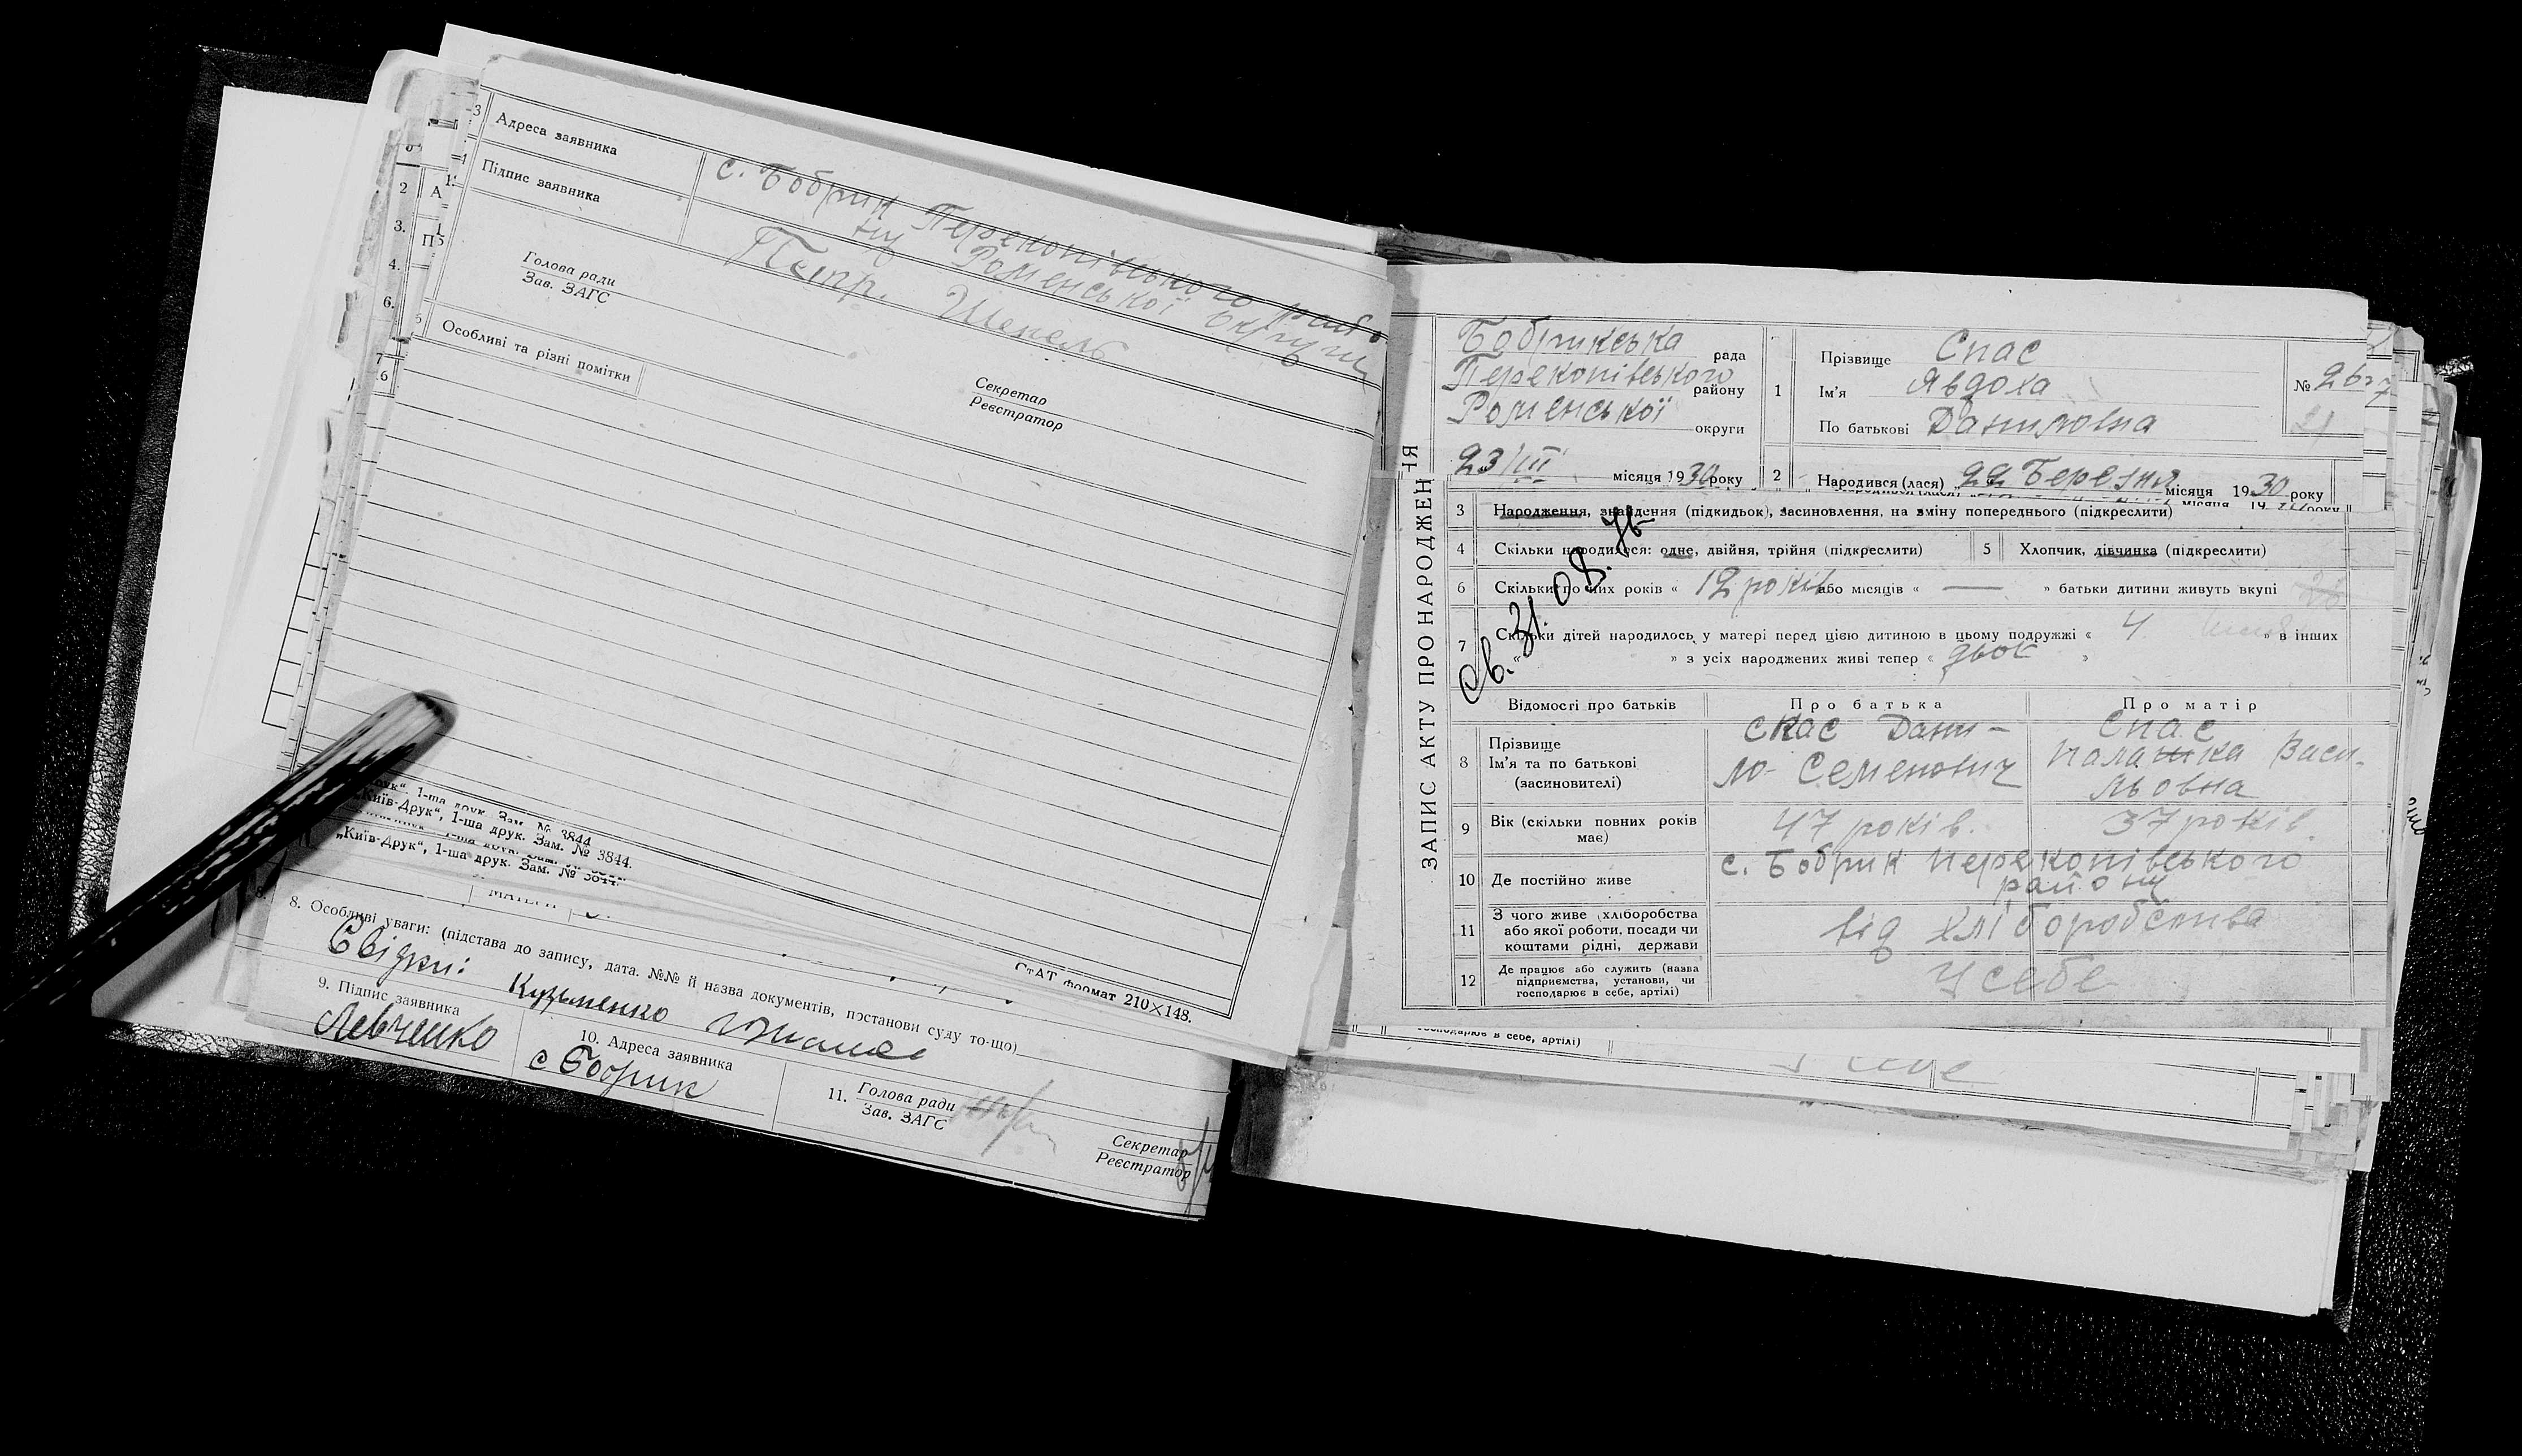 3 Адреса заявника
с. Бобрик Перекопівського рай
ну Роменської округи
Підпис заявника
Петр. Шекель
Голова ради
Зав. ЗАГС
Секретар
Реєстратор
5 Особливі та різні помітки
„Київ-Друк“, 1-ша друк. Зам. № 3844.
„Київ-Друк“, 1-ша друк. Зам. № 3844.
СтАТ формат 210×148.
8. Особливі уваги: (підстава до запису, дата. №№ й назва документів, постанови суду то-що)
Свідки: Кузьменко
9. Підпис заявника
Левченко
10. Адреса заявника
с Бобрик
11. Голова ради
Зав. ЗАГС
Секретар
Реєстратор
ЗАПИС АКТУ ПРО НАРОДЖЕННЯ
Бобрикська рада
Перекопівського району
Роменської округи
23/III місяця 1930 року
1 Прізвище Спас
Ім'я Явдоха
По батькові Даниловна
№ 26
2 Народився (лася) 22 Березня місяця 1930 року
3 Народження, знайдення (підкидьок), засиновлення, на зміну попереднього (підкреслити)
4 Скільки народилося: одне, двійня, трійня (підкреслити) 5 Хлопчик, дівчинка (підкреслити)
6 Скільки повних років « 12 років або місяців « — » батьки дитини живуть вкупі
7 Скільки дітей народилось у матері перед цією дитиною в цьому подружжі « 4 » в інших
« » з усіх народжених живі тепер « двок »
св. 31.08.76
Відомості про батьків Про батька Про матір
8 Прізвище
Ім'я та по батькові
(засиновителі)
Спас Дани-
ло- Семенович
Спас
Палашка Васи-
льовна
9 Вік (скільки повних років має) 47 років. 37 років.
10 Де постійно живе с. Бобрик Перекопівського
району
11 З чого живе (хліборобства
або якої роботи, посади чи
коштами рідні, держави
від хліборобства
12 Де працює або служить (назва
підприємства, установи, чи
господарює в себе, артілі)
У себе
господарює в себе, артілі)